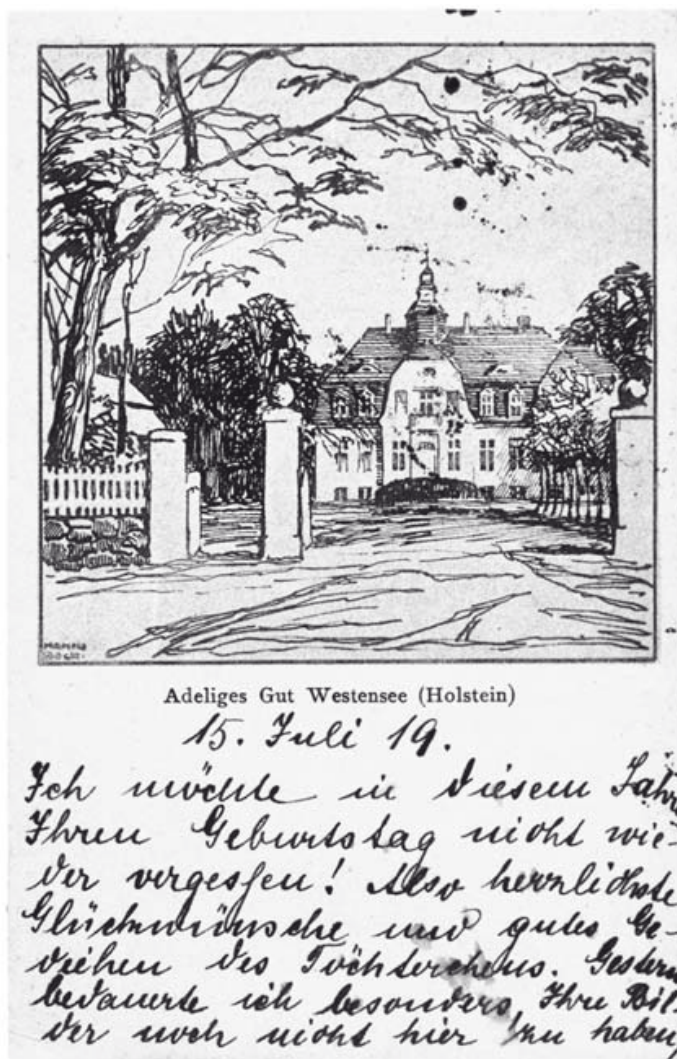 Adeliges Gut Westensee (Holstein)
15. Juli 19.
Ich möchte in diesem Jahre
Ihren Geburtstag nicht wie-
der vergessen! Also herzlichste
Glückwünsche und gutes Ge-
deihen des Töchterchens. Gestern
bedauerte ich besonders, Ihre Bil-
der noch nicht hier zu haben,